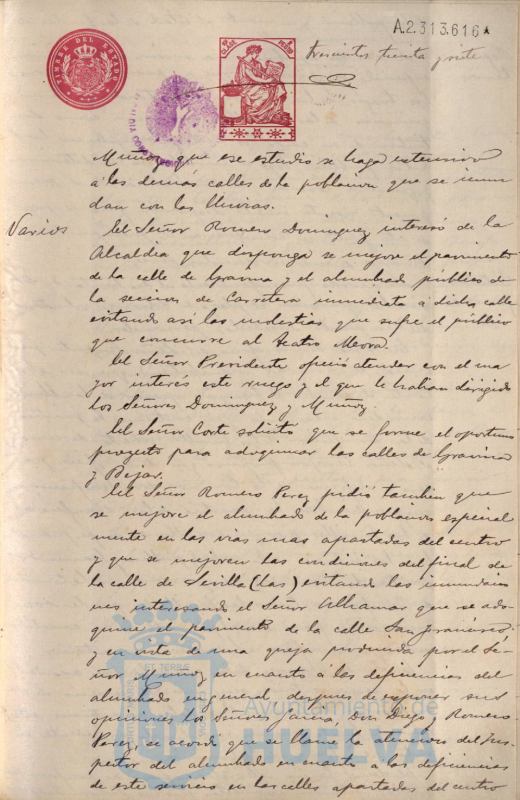 A.2.313.616*
TIMBRE DEL ESTADO
trescientos treinta y siete
Muñoz que ese estudio se haga extensivo
á las demás calles de la poblacion que se inun
dan con las lluvias.
Varios
El Señor Romero Dominguez interesó de la
Alcaldia que disponga se mejore el pavimento
de la calle de Gravina y el alumbrado público de
la seccion de Carretera inmediata á dicha calle
evitando así las molestias que sufre el público
que concurre al teatro Mora.
El Señor Presidente ofreció atender con el ma
yor interés este ruego y el que le habian dirigido
los Señores Dominguez y Muñoz.
El Señor Corte solicitó que se forme el oportuno
proyecto para adoquinar las calles de Gravina
y Bejar.
El Señor Romero Perez pidió tambien que
se mejore el alumbrado de la poblacion especial
mente en las vias mas apartadas del centro
y que se mejoren las condiciones del final de
la calle de Sevilla (las) evitando las inundacio
nes interesando el Señor Alhamar que se ado
quine el pavimento de la calle San Francisco:
y en vista de una queja producida por el Se
ñor Muñoz en cuanto á las deficiencias del
alumbrado en general, despues de exponer sus
opiniones los Señores Garcia, Don Diego, y Romero
Perez, se acordó que se llame la atencion del Ins
pector del alumbrado en cuanto á las deficiencias
de este servicio en las calles apartadas del centro
Ayuntamiento de
HUELVA